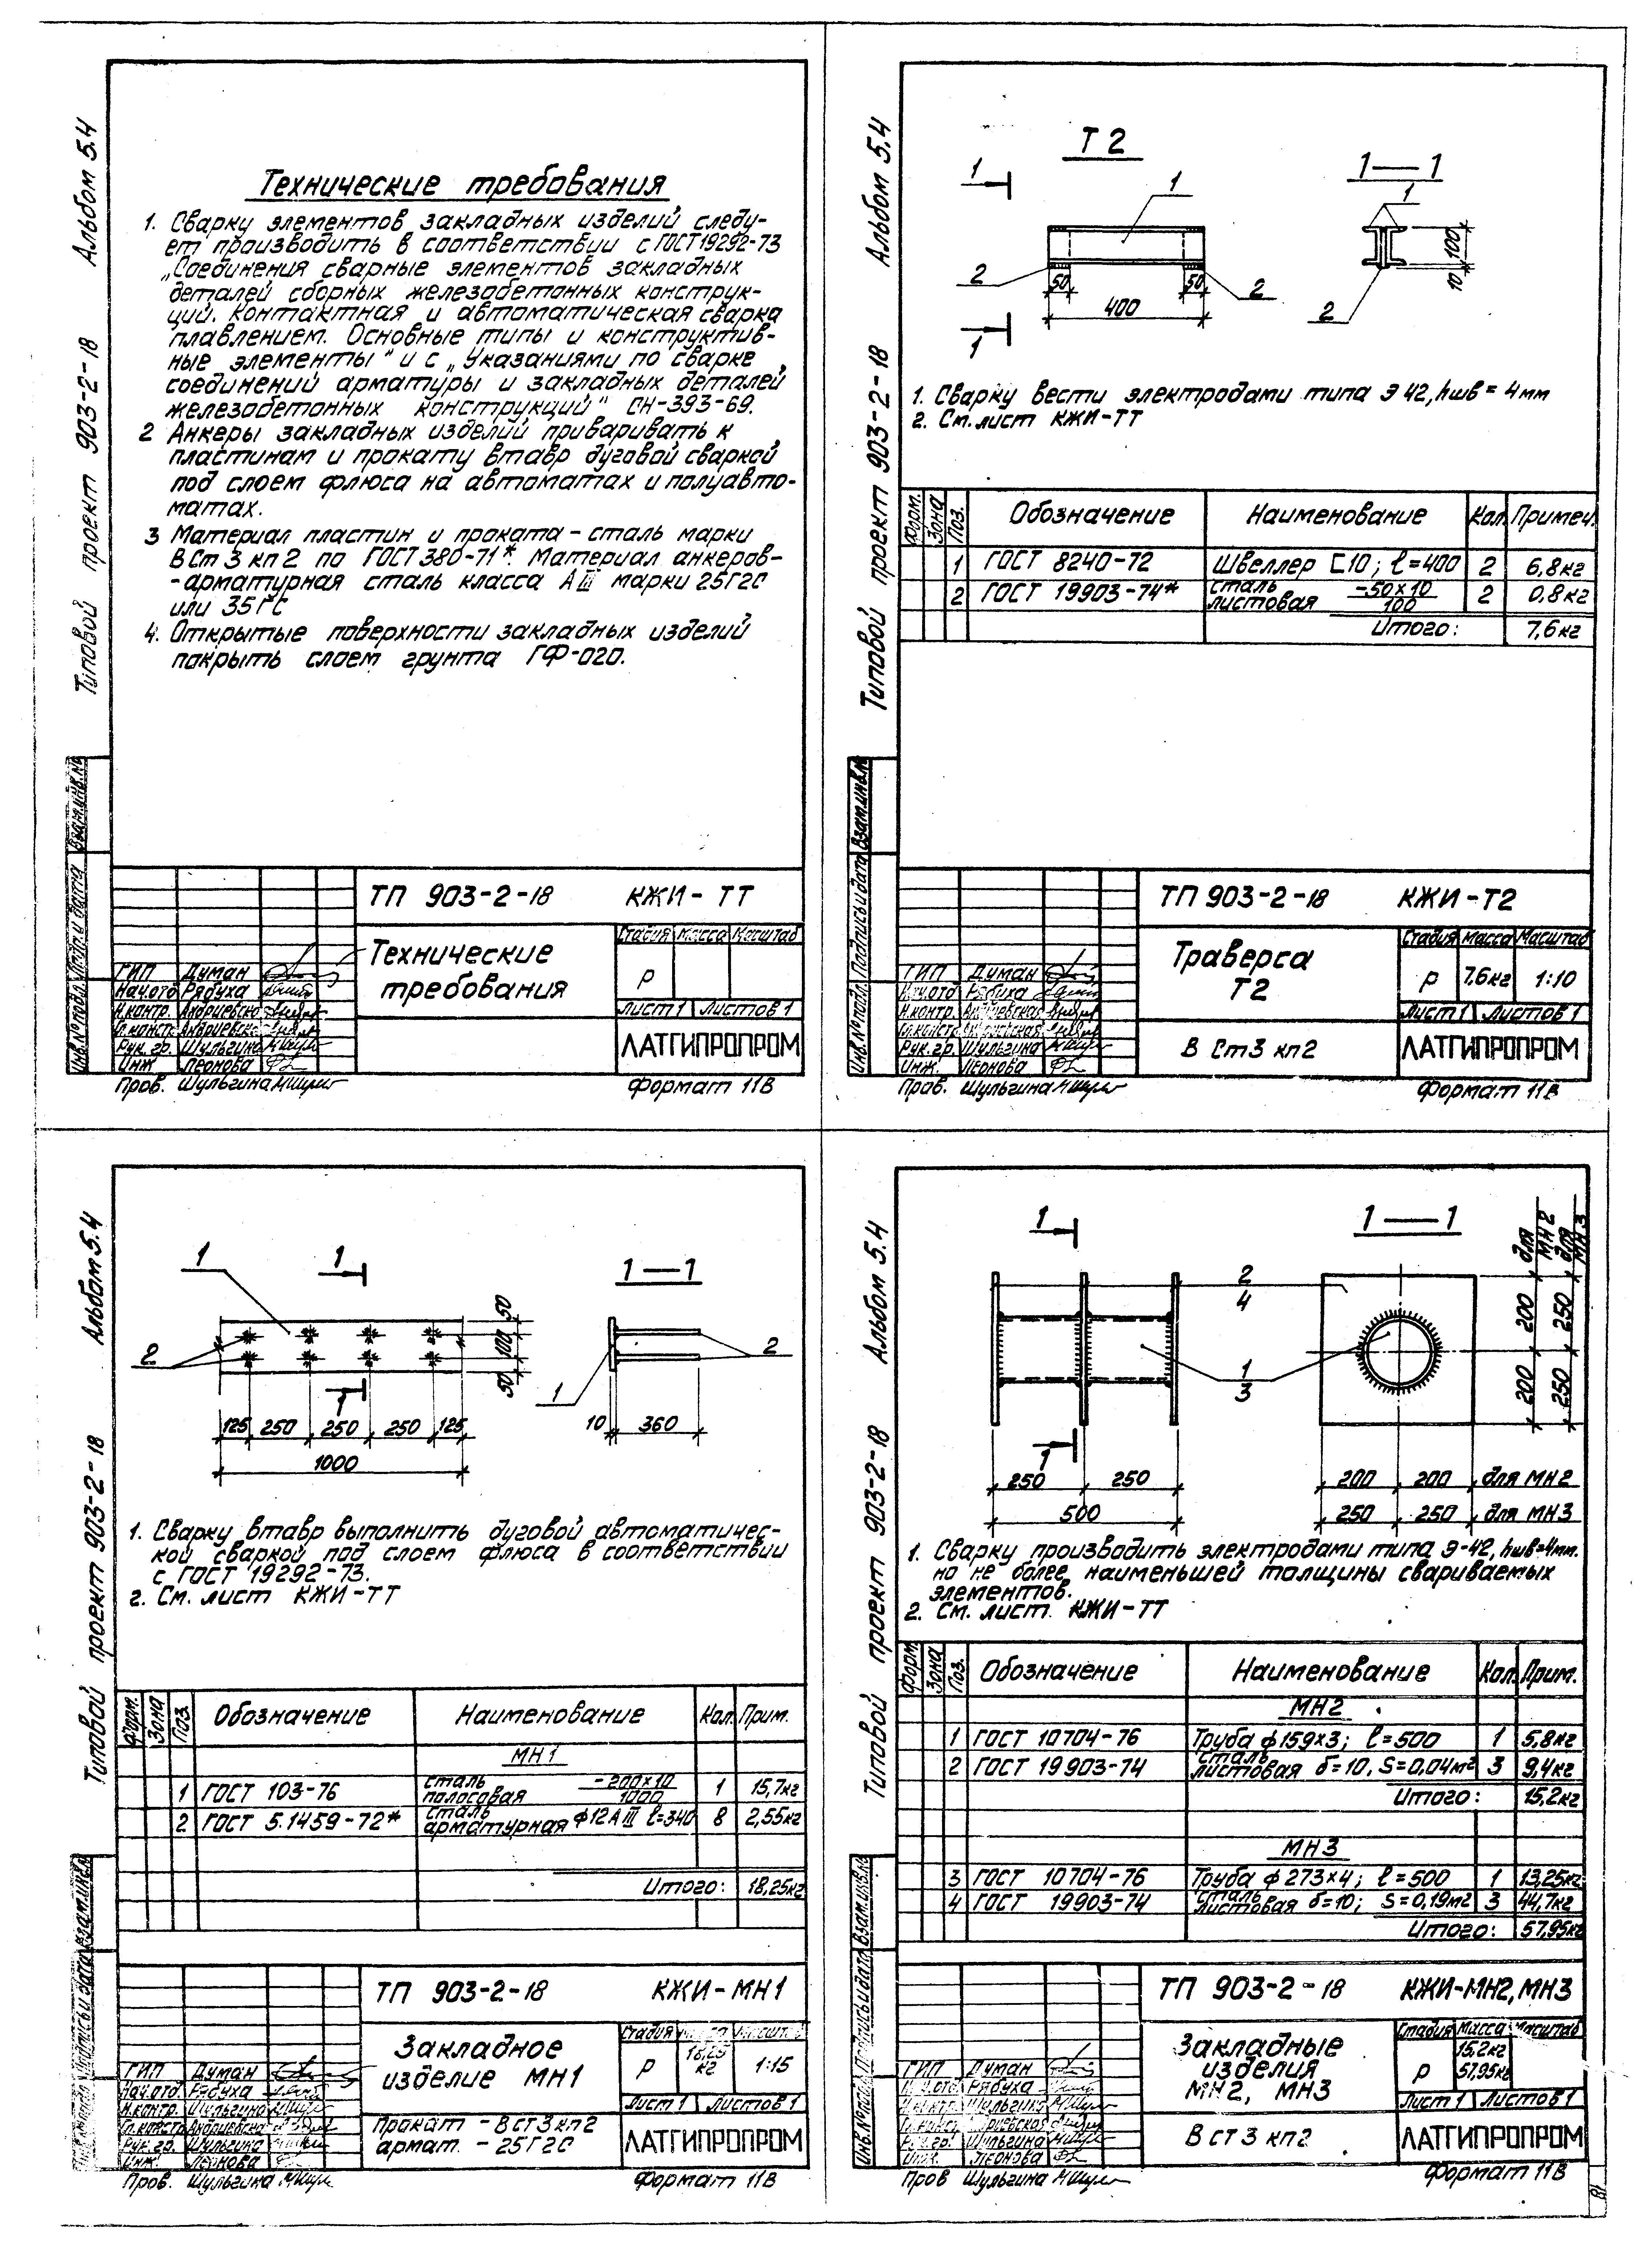 Типовой проект 903-2-18 Альбом 5.4
Технические требования
1. Сварку элементов закладных изделий следу-
ет производить в соответствии с ГОСТ 19292-73
„Соединения сварные элементов закладных
деталей сборных железобетонных конструк-
ций. Контактная и автоматическая сварка
плавлением. Основные типы и конструктив-
ные элементы" и с „Указаниями по сварке
соединений арматуры и закладных деталей
железобетонных конструкций" СН-393-69.
2 Анкеры закладных изделий приваривать к
пластинам и прокату втавр дуговой сваркой
под слоем флюса на автоматах и полуавто-
матах.
3 Материал пластин и проката - сталь марки
ВСт3кп2 по ГОСТ 380-71*. Материал анкеров-
-арматурная сталь класса АIII марки 25Г2С
или 35ГС
4. Открытые поверхности закладных изделий
покрыть слоем грунта ГФ-020.
Взам.инв.№
Подп. и дата
Инв.№ подл.
ТП 903-2-18 КЖИ-ТТ
Технические
требования
Стадия Масса Масштаб
Р
Лист 1 Листов 1
ЛАТГИПРОПРОМ
ГИП Думан
Нач.отд Рябуха
Н.контр. Андриевска
Гл.констр. Андриевска
Рук.гр. Шульгина
Инж Леонова
Пров. Шульгина
Формат 11В
Типовой проект 903-2-18 Альбом 5.4
Т2
1
1
1
2
2
50
50
400
1—1
1
2
100
10
1. Сварку вести электродами типа Э42, hшв = 4мм
2. См. лист КЖИ-ТТ
Форм. Зона Поз. Обозначение Наименование Кол. Примеч.
1 ГОСТ 8240-72 Швеллер [10; ℓ=400 2 6,8кг
2 ГОСТ 19903-74* Сталь листовая -50×10/100 2 0,8кг
Итого: 7,6кг
Взам.инв.№
Подпись и дата
Инв.№ подл.
ТП 903-2-18 КЖИ-Т2
Траверса
Т2
Стадия Масса Масштаб
Р 7,6кг 1:10
Лист 1 Листов 1
В Ст3 кп2
ЛАТГИПРОПРОМ
ГИП Думан
Нач.отд Рябуха
Н.контр. Андриевская
Гл.констр Андриевская
Рук.гр. Шульгина
Инж. Леонова
Пров. Шульгина
Формат 11В
Типовой проект 903-2-18 Альбом 5.4
1
1
1
2
50
100
50
125 250 250 250 125
1000
1—1
2
1
10 360
1. Сварку втавр выполнить дуговой автоматичес-
кой сваркой под слоем флюса в соответствии
с ГОСТ 19292-73.
2. См. лист КЖИ-ТТ
Форм. Зона Поз Обозначение Наименование Кол. Прим.
МН1
1 ГОСТ 103-76 Сталь полосовая -200×10/1000 1 15,7кг
2 ГОСТ 5.1459-72* Сталь арматурная ф12АIII ℓ=340 8 2,55кг
Итого: 18,25кг
Взам.инв.№
Подпись и дата
ТП 903-2-18 КЖИ-МН1
Закладное
изделие МН1
Стадия Масса Масшт.
Р 18,25 кг 1:15
Лист 1 Листов 1
Прокат - Вст3кп2
армат. - 25Г2С
ЛАТГИПРОПРОМ
ГИП Думан
Нач.отд Рябуха
Н.контр. Шульгина
Гл.констр Андриевска
Рук.гр. Шульгина
Инж. Леонова
Пров. Шульгина
Формат 11В
Типовой проект 903-2-18 Альбом 5.4
1
1
2
4
1
3
250 250
500
1—1
для МН2
для МН3
200 250
200 250
200 200 для МН2
250 250 для МН3
1. Сварку производить электродами типа Э-42, hшв=4мм.
но не более наименьшей толщины свариваемых
элементов.
2. См. лист КЖИ-ТТ
Форм. Зона Поз. Обозначение Наименование Кол. Прим.
МН2
1 ГОСТ 10704-76 Труба ф159×3; ℓ=500 1 5,8кг
2 ГОСТ 19903-74 Сталь листовая δ=10, S=0,04м² 3 9,4кг
Итого: 15,2кг
МН3
3 ГОСТ 10704-76 Труба ф273×4; ℓ=500 1 13,25кг
4 ГОСТ 19903-74 Сталь листовая δ=10; S=0,19м² 3 44,7кг
Итого: 57,95кг
Взам.инв.№
Подпись и дата
Инв.№ подл
ТП 903-2-18 КЖИ-МН2, МН3
Закладные
изделия
МН2, МН3
Стадия Масса Масштаб
Р 15,2кг 57,95кг
Лист 1 Листов 1
Вст3 кп2
ЛАТГИПРОПРОМ
ГИП Думан
Нач.отд Рябуха
Н.контр. Шульгина
Гл.констр Андриевская
Рук.гр. Шульгина
Инж. Леонова
Пров Шульгина
Формат 11В
18